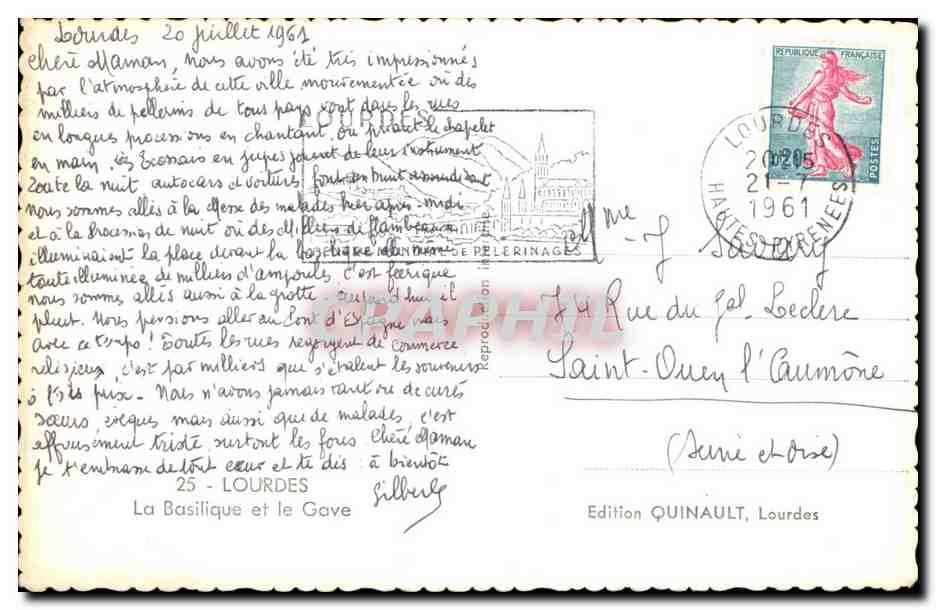 Lourdes 20 juillet 1961
Chère Maman, nous avons été très impressionnés
par l'atmosphère de cette ville mouvementée où des
milliers de pèlerins de tous pays vont dans les rues
en longues processions en chantant, ou priant le chapelet
en main. Des Ecossais en jupes jouent de leur instrument
Toute la nuit autocars et voitures font un bruit assourdissant
nous sommes allés à la Messe des malades hier après-midi
et à la Procession de nuit où des Milliers de flambeaux
illuminaient la place devant la basilique elle-même
toute illuminée de milliers d'ampoules, c'est féerique
nous sommes allés aussi à la grotte. aujourd'hui il
pleut. Nous pensions aller au Pont d'Espagne mais
avec ce temps! Toutes les rues regorgent de commerce
religieux, c'est par milliers que s'étalent les souvenirs
à tous prix - Nous n'avons jamais tant vu de curés
sœurs, évêques mais aussi que de malades, c'est
affreusement triste surtout les fous. Chère Maman
je t'embrasse de tout cœur et te dis : à bientôt
Gilberte
25 - LOURDES
La Basilique et le Gave
LOURDES
DE PELERINAGES
Reproduction interdite
CARAPHIL
REPUBLIQUE FRANÇAISE
0,20
POSTES
LOURDES
21-7
1961
HAUTES-PYRENEES
Mme J Savary
74 Rue du Gal Leclerc
Saint-Ouen l'Aumône
(Seine et Oise)
Edition QUINAULT, Lourdes